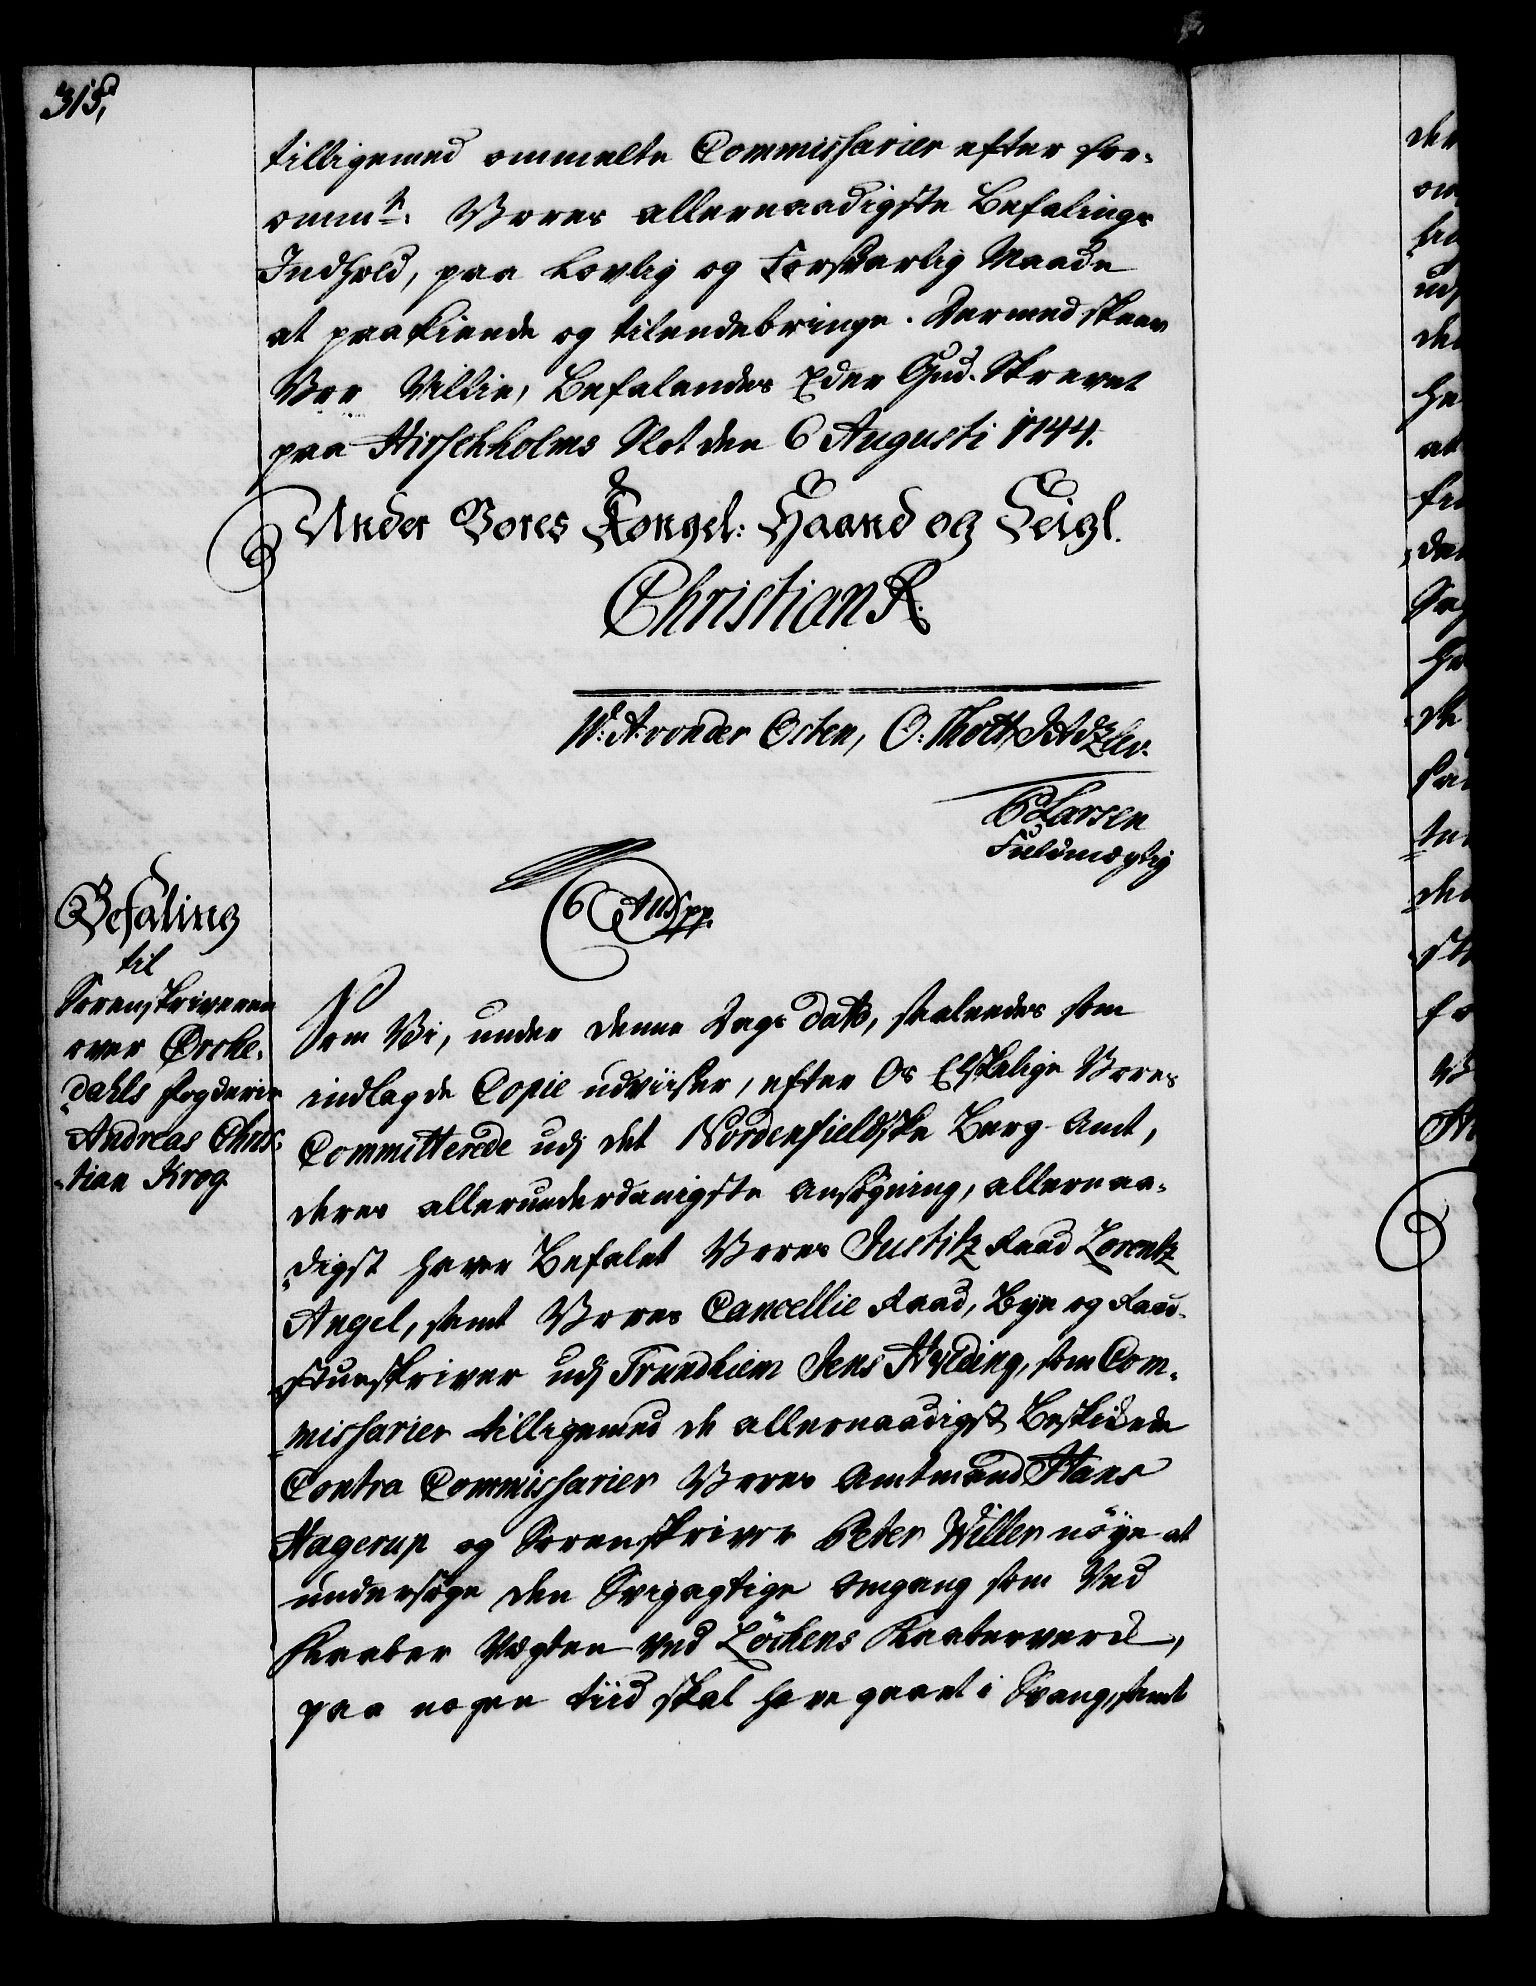 315,
tilligemed ommelte Commissarier efter for-
ommte: Vores allernaadigste Befalings
Indhold, paa Lovlig og Forsvarlig Maade
at paakiende og tilendebringe. Dermed skeer
Vor Villie, Befalendes Eder Gud. Skrevet
paa Hirschholms Slot den 6 Augusti 1744.
Under Vores Kongel: Haand og Seigl.
Christian R.
W: A: von der Osten, O: Thott,
C Larsen
Fuldmægtig
Befaling
til
Sorenskriveren
over Orcke-
dahls fogderie
Andreas Chris-
tian Krog
C 6tus pp.
Som Vi, under denne Dags dato, saaleedes som
indlagde Copie udviiser, efter Os Elskelige Vores
Committerede udj det Nordenfieldske Berg-Amt,
deres allerunderdanigste Ansøgning, allernaa-
digst have Befalet Vores Justitz Raad Lorentz
Angel, samt Vores Cancellie Raad, Bye og Raad-
stueskriver udj Trundhiem Jens Hvlding, som Com-
missarier tilligemed de allernaadigst Beskikkede
Contra Commissarier Vores Amtmand Hans
Hagerup og Sorenskriver Peter Willer nøye at
undersøge den Svigagtige omgang som Ved
Kaaber Vægten ved Löckens Kaaberverck,
paa nogen tiid skal have gaaet i Svang, samt